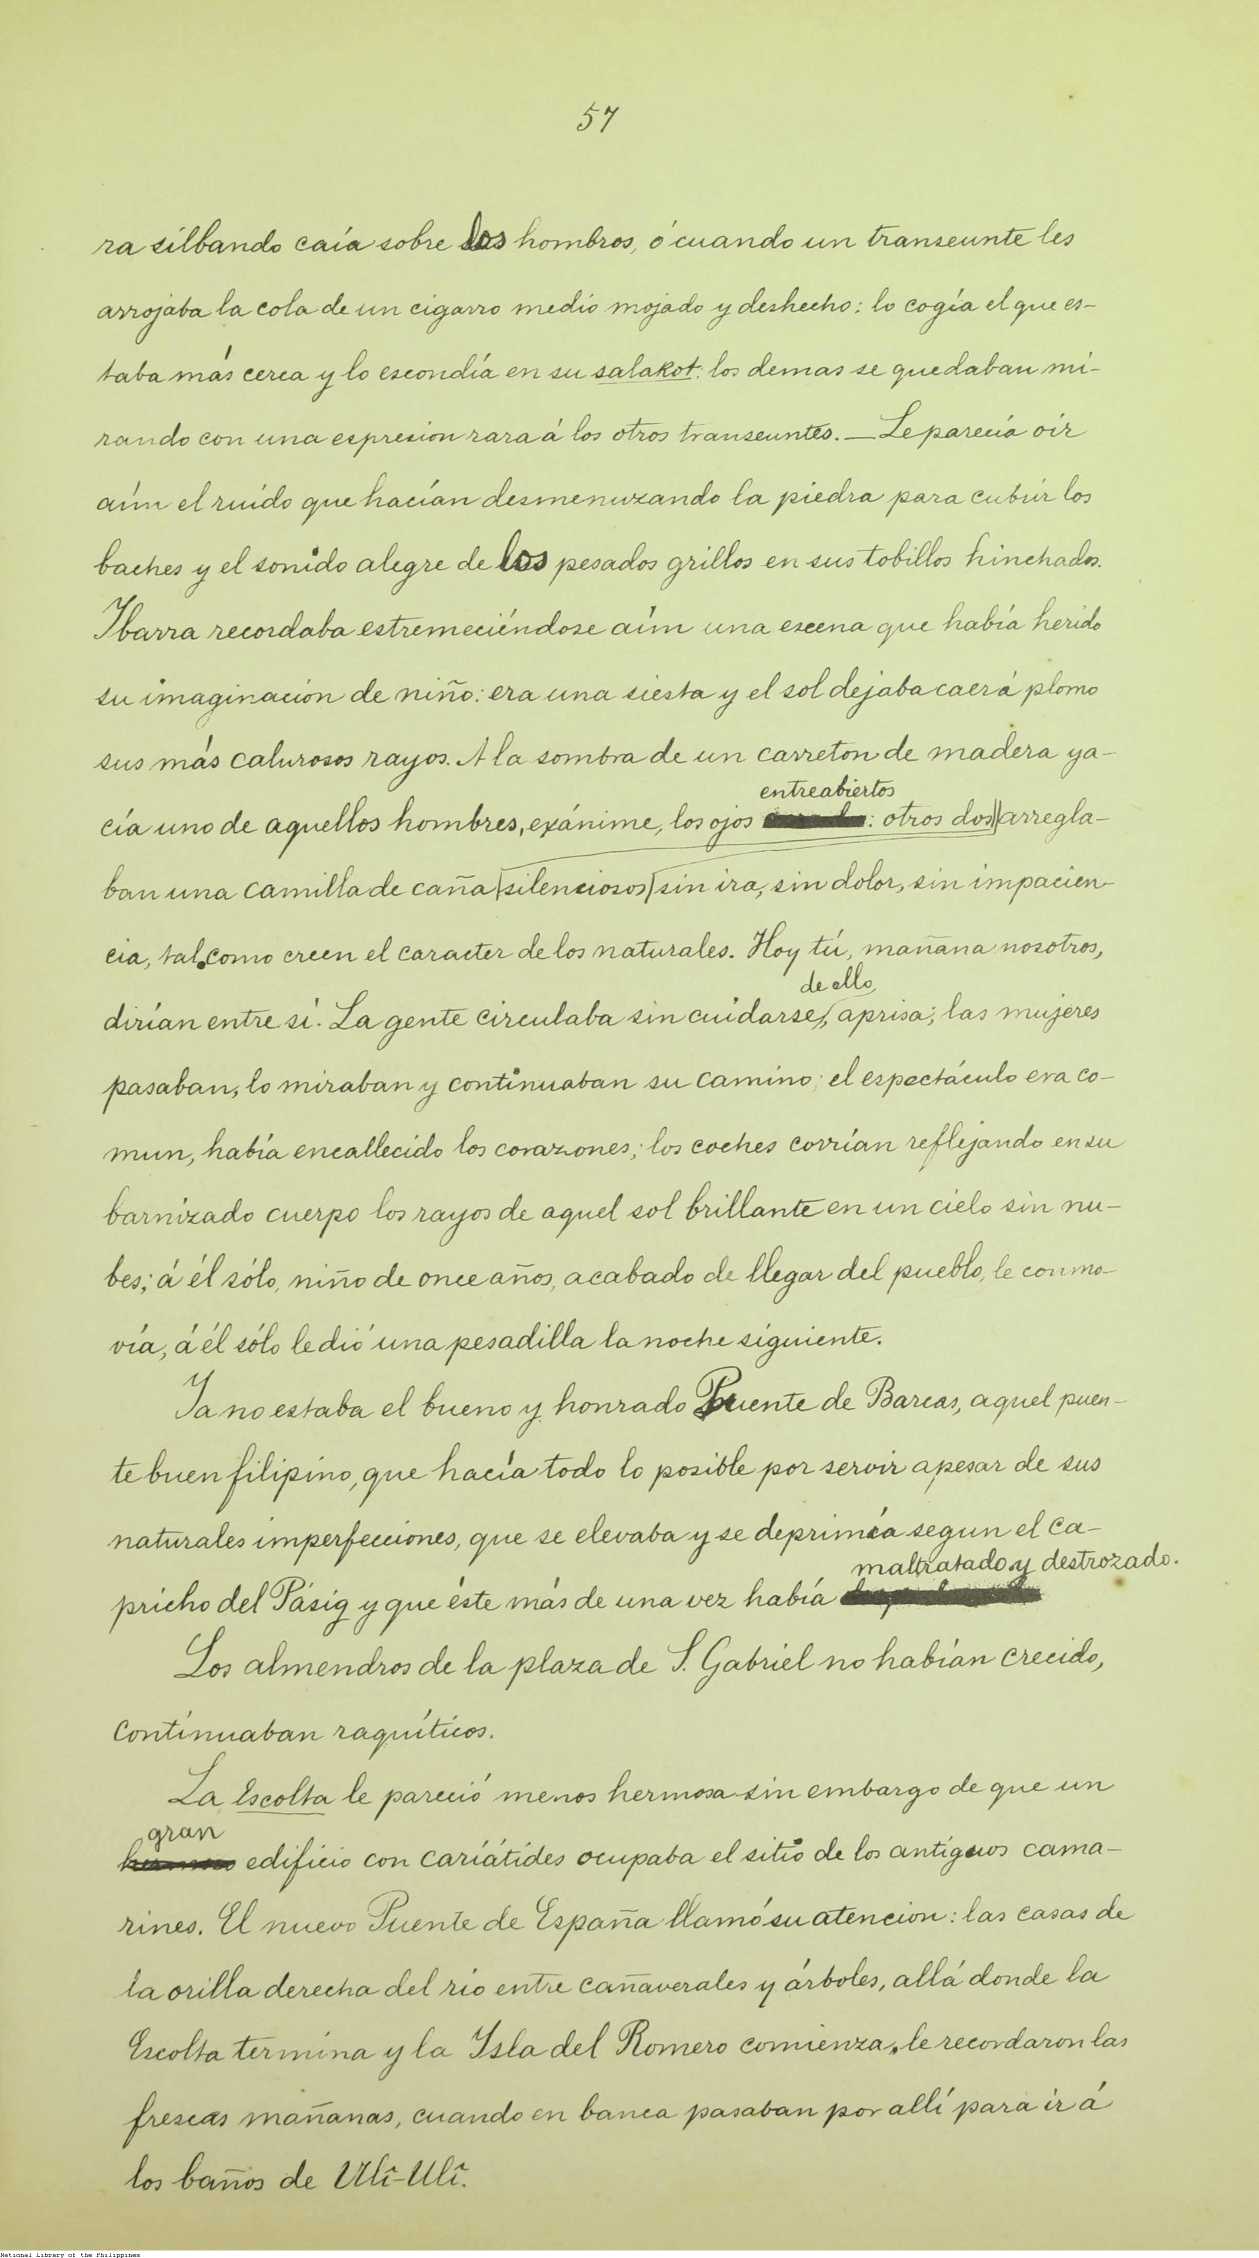 57
ra silbando caía sobre los hombros, ó cuando un transeunte les
arrojaba la cola de un cigarro medio mojado y deshecho: lo cogía el que es-
taba más cerca y lo escondía en su salakot: los demas se quedaban mi-
rando con una espresion rara á los otros transeuntes. — Le parecía oir
aún el ruido que hacían desmenuzando la piedra para cubrir los
baches y el sonido alegre de los pesados grillos en sus tobillos hinchados.
Ibarra recordaba estremeciéndose aún una escena que había herido
su imaginación de niño: era una siesta y el sol dejaba caer á plomo
sus más calurosos rayos. A la sombra de un carreton de madera ya-
entreabiertos
cía uno de aquellos hombres, exánime, los ojos : otros dos arregla-
ban una camilla de caña silenciosos sin ira, sin dolor, sin impacien-
cia, tal como creen el caracter de los naturales. Hoy tú, mañana nosotros,
de ello
dirían entre sí. La gente circulaba sin cuidarse, aprisa; las mujeres
pasaban, lo miraban y continuaban su camino; el espectáculo era co-
mun, había encallecido los corazones; los coches corrían reflejando en su
barnizado cuerpo los rayos de aquel sol brillante en un cielo sin nu-
bes; á él sólo, niño de once años, acabado de llegar del pueblo, le conmo-
vía, á él sólo le dió una pesadilla la noche siguiente.
Ya no estaba el bueno y honrado Puente de Barcas, aquel puen-
te buen filipino, que hacía todo lo posible por servir apesar de sus
naturales imperfecciones, que se elevaba y se deprimía segun el ca-
maltratado y destrozado.
pricho del Pásig y que éste más de una vez había
Los almendros de la plaza de S. Gabriel no habían crecido,
continuaban raquíticos.
La Escolta le pareció menos hermosa sin embargo de que un
gran
edificio con cariátides ocupaba el sitio de los antiguos cama-
rines. El nuevo Puente de España llamó su atencion: las casas de
la orilla derecha del río entre cañaverales y árboles, allá donde la
Escolta termina y la Isla del Romero comienza, le recordaron las
frescas mañanas, cuando en banca pasaban por allí para ir á
los baños de Ulî-Ulî.
National Library of the Philippines